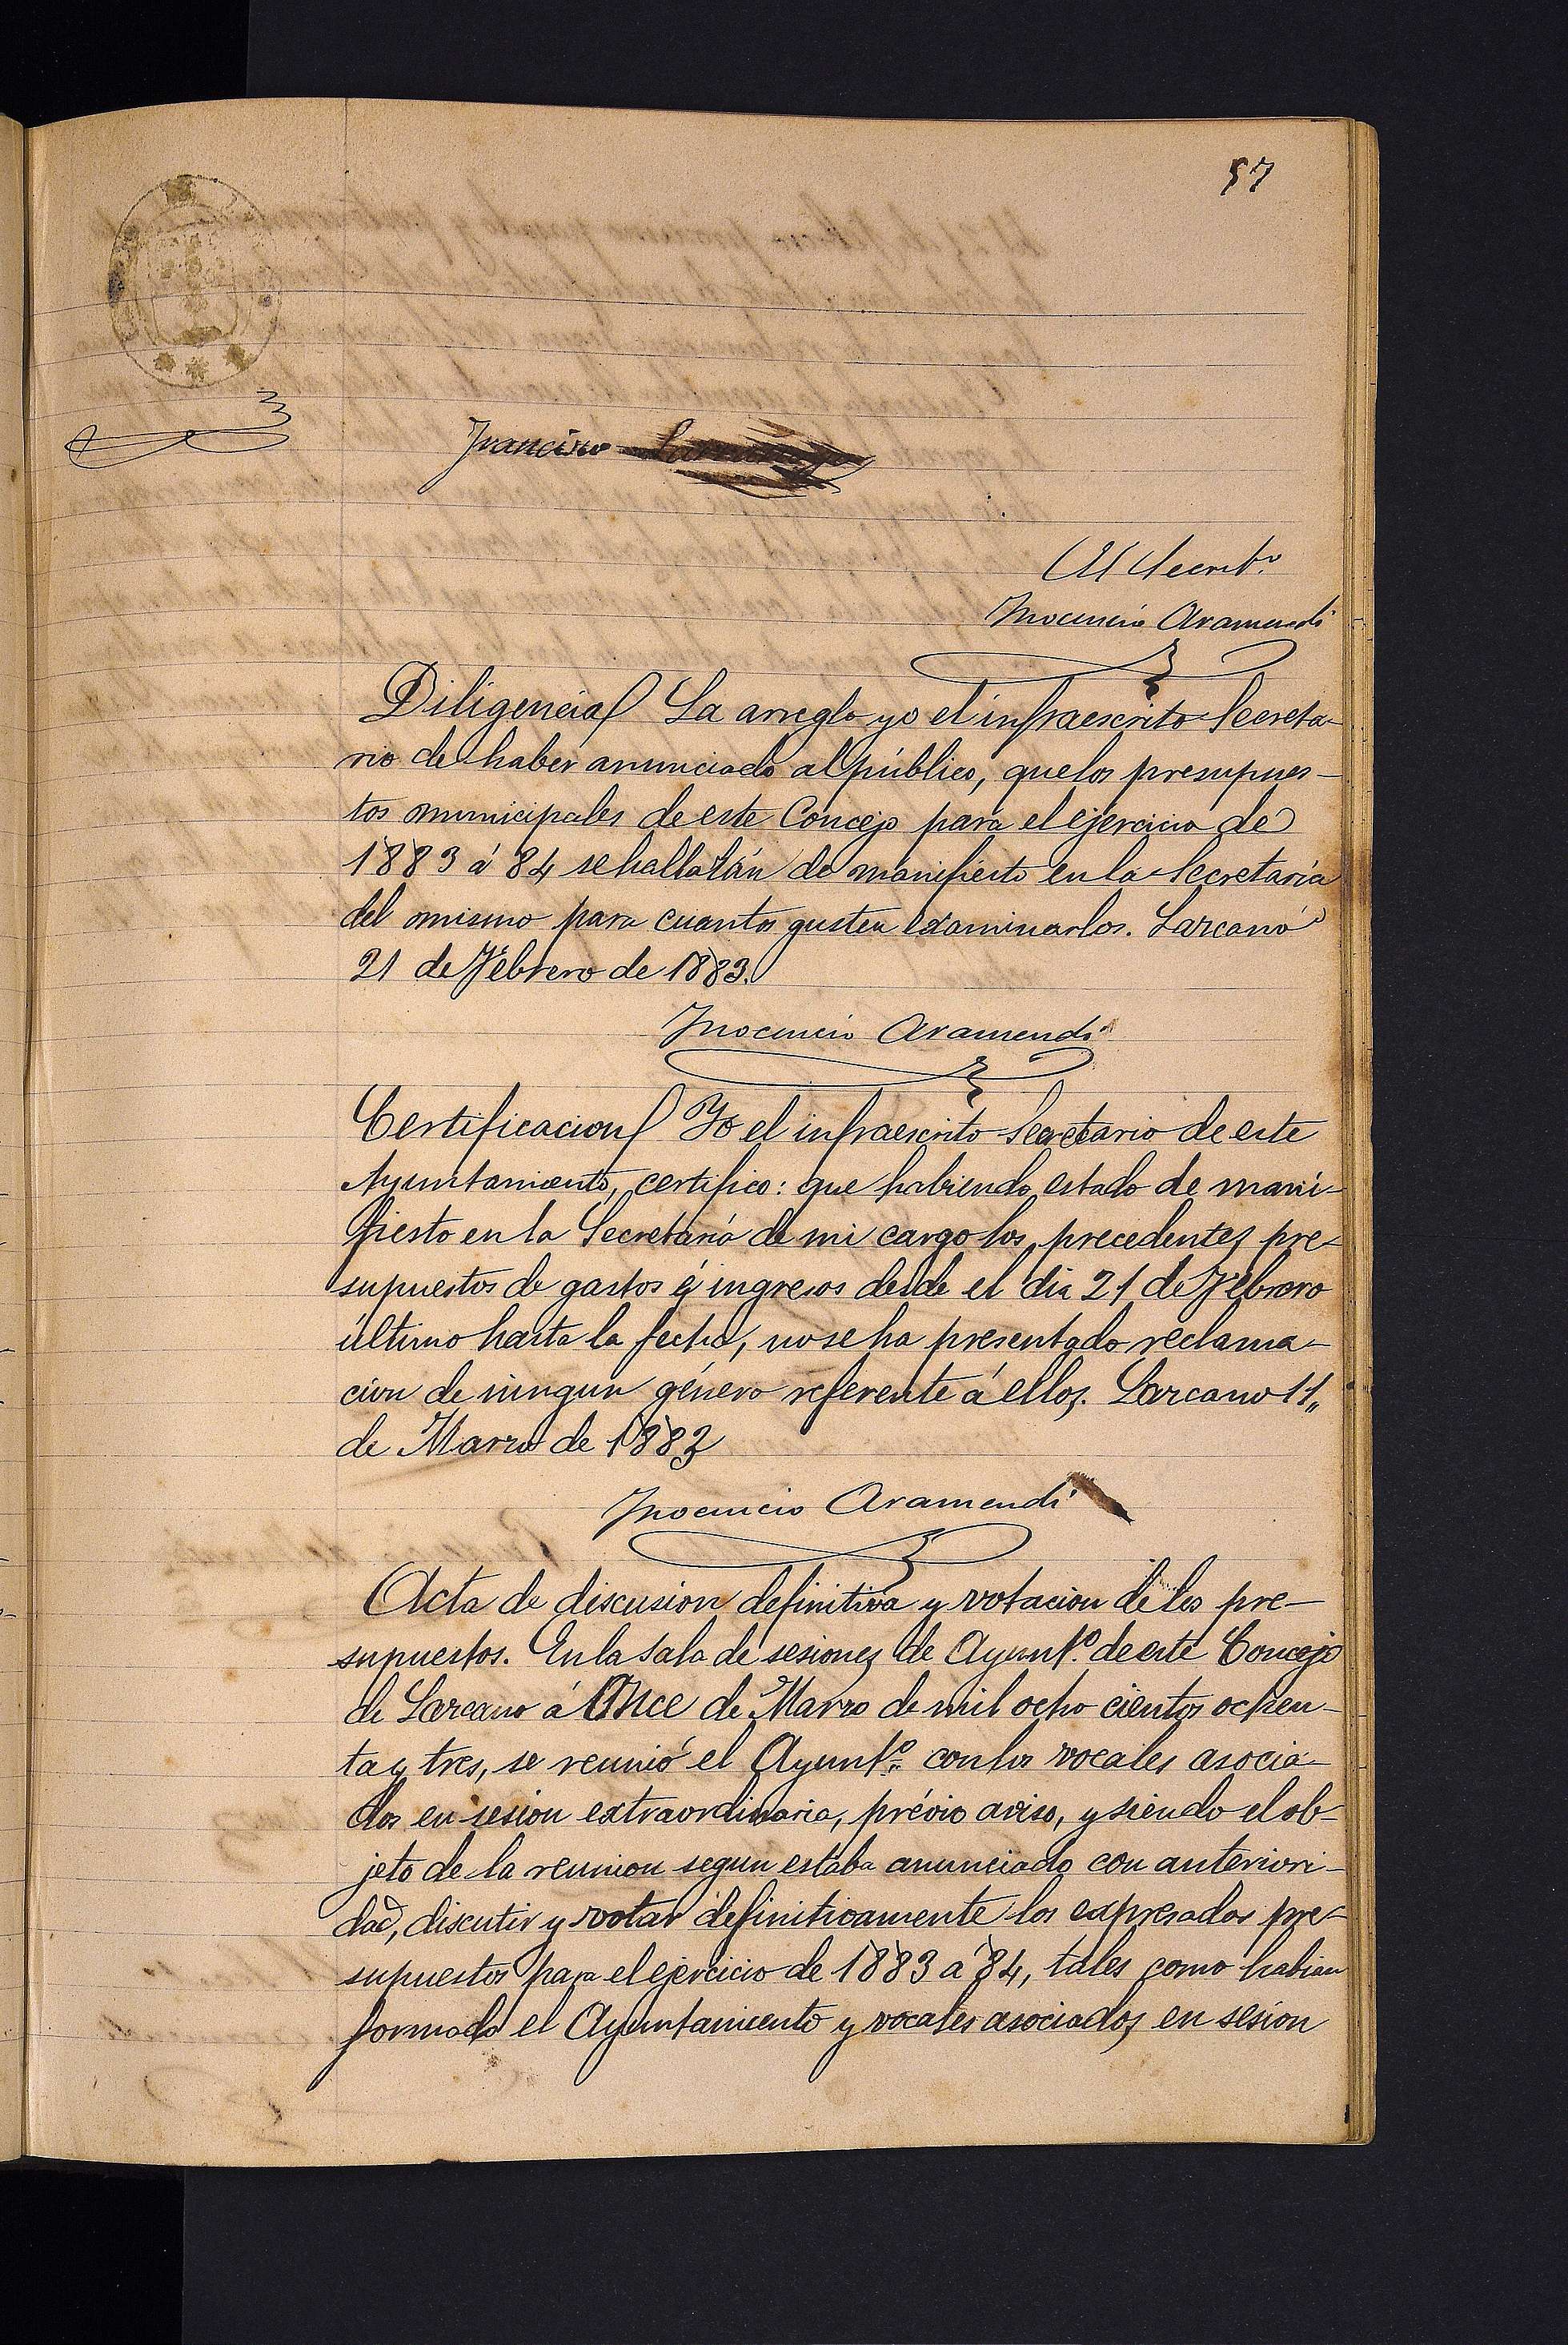 57
Francisco
El Secret.º
Inocencio Aramendi
Diligencia La arreglo yo el infraescrito Secreta-
rio de haber anunciado al público, que los presupues-
tos municipales de este Concejo para el ejercicio de
1883 á 84 se hallarán de manifiesto en la Secretaría
del mismo para cuantos gusten examinarlos. Lazcano
21 de Febrero de 1883.
Inocencio Aramendi
Certificacion Yo el infraescrito Secretario de este
Ayuntamiento, certifico: que habiendo estado de mani-
fiesto en la Secretaría de mi cargo los precedentes pre-
supuestos de gastos é ingresos desde el dia 21 de Febrero
último hasta la fecha, no se ha presentado reclama-
cion de ningun género referente á ellos. Lazcano 11
de Marzo de 1883
Inocencio Aramendi
Acta de discusion definitiva y votacion de los pre-
supuestos. En la sala de sesiones de Ayunt.º de este Concejo
de Lazcano á Once de Marzo de mil ocho cientos ochen-
ta y tres, se reunió el Ayunt.º con los vocales asocia-
dos en sesion extraordinaria, prévio aviso, y siendo el ob-
jeto de la reunion segun estaba anunciado con anteriori-
dad, discutir y votar definitivamente los expresados pre-
supuestos para el ejercicio de 1883 a 84, tales como habian
formado el Ayuntamiento y vocales asociados en sesion